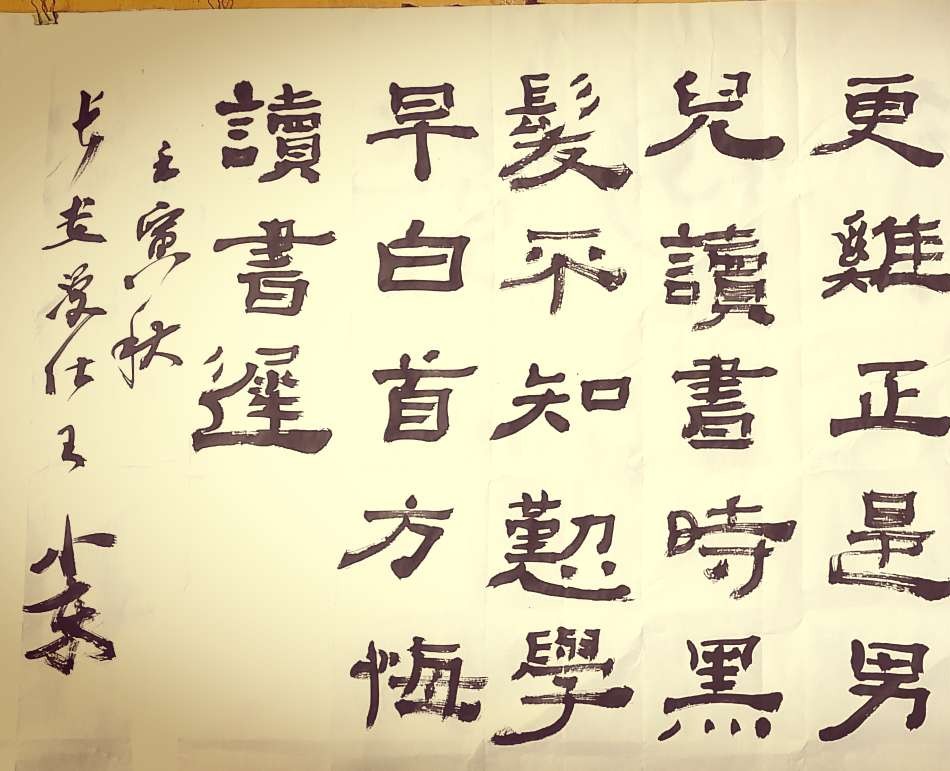 更雞正是男
兒讀書時黑
髮不知懃學
早白首方悔
讀書遲
壬寅秋
仕王